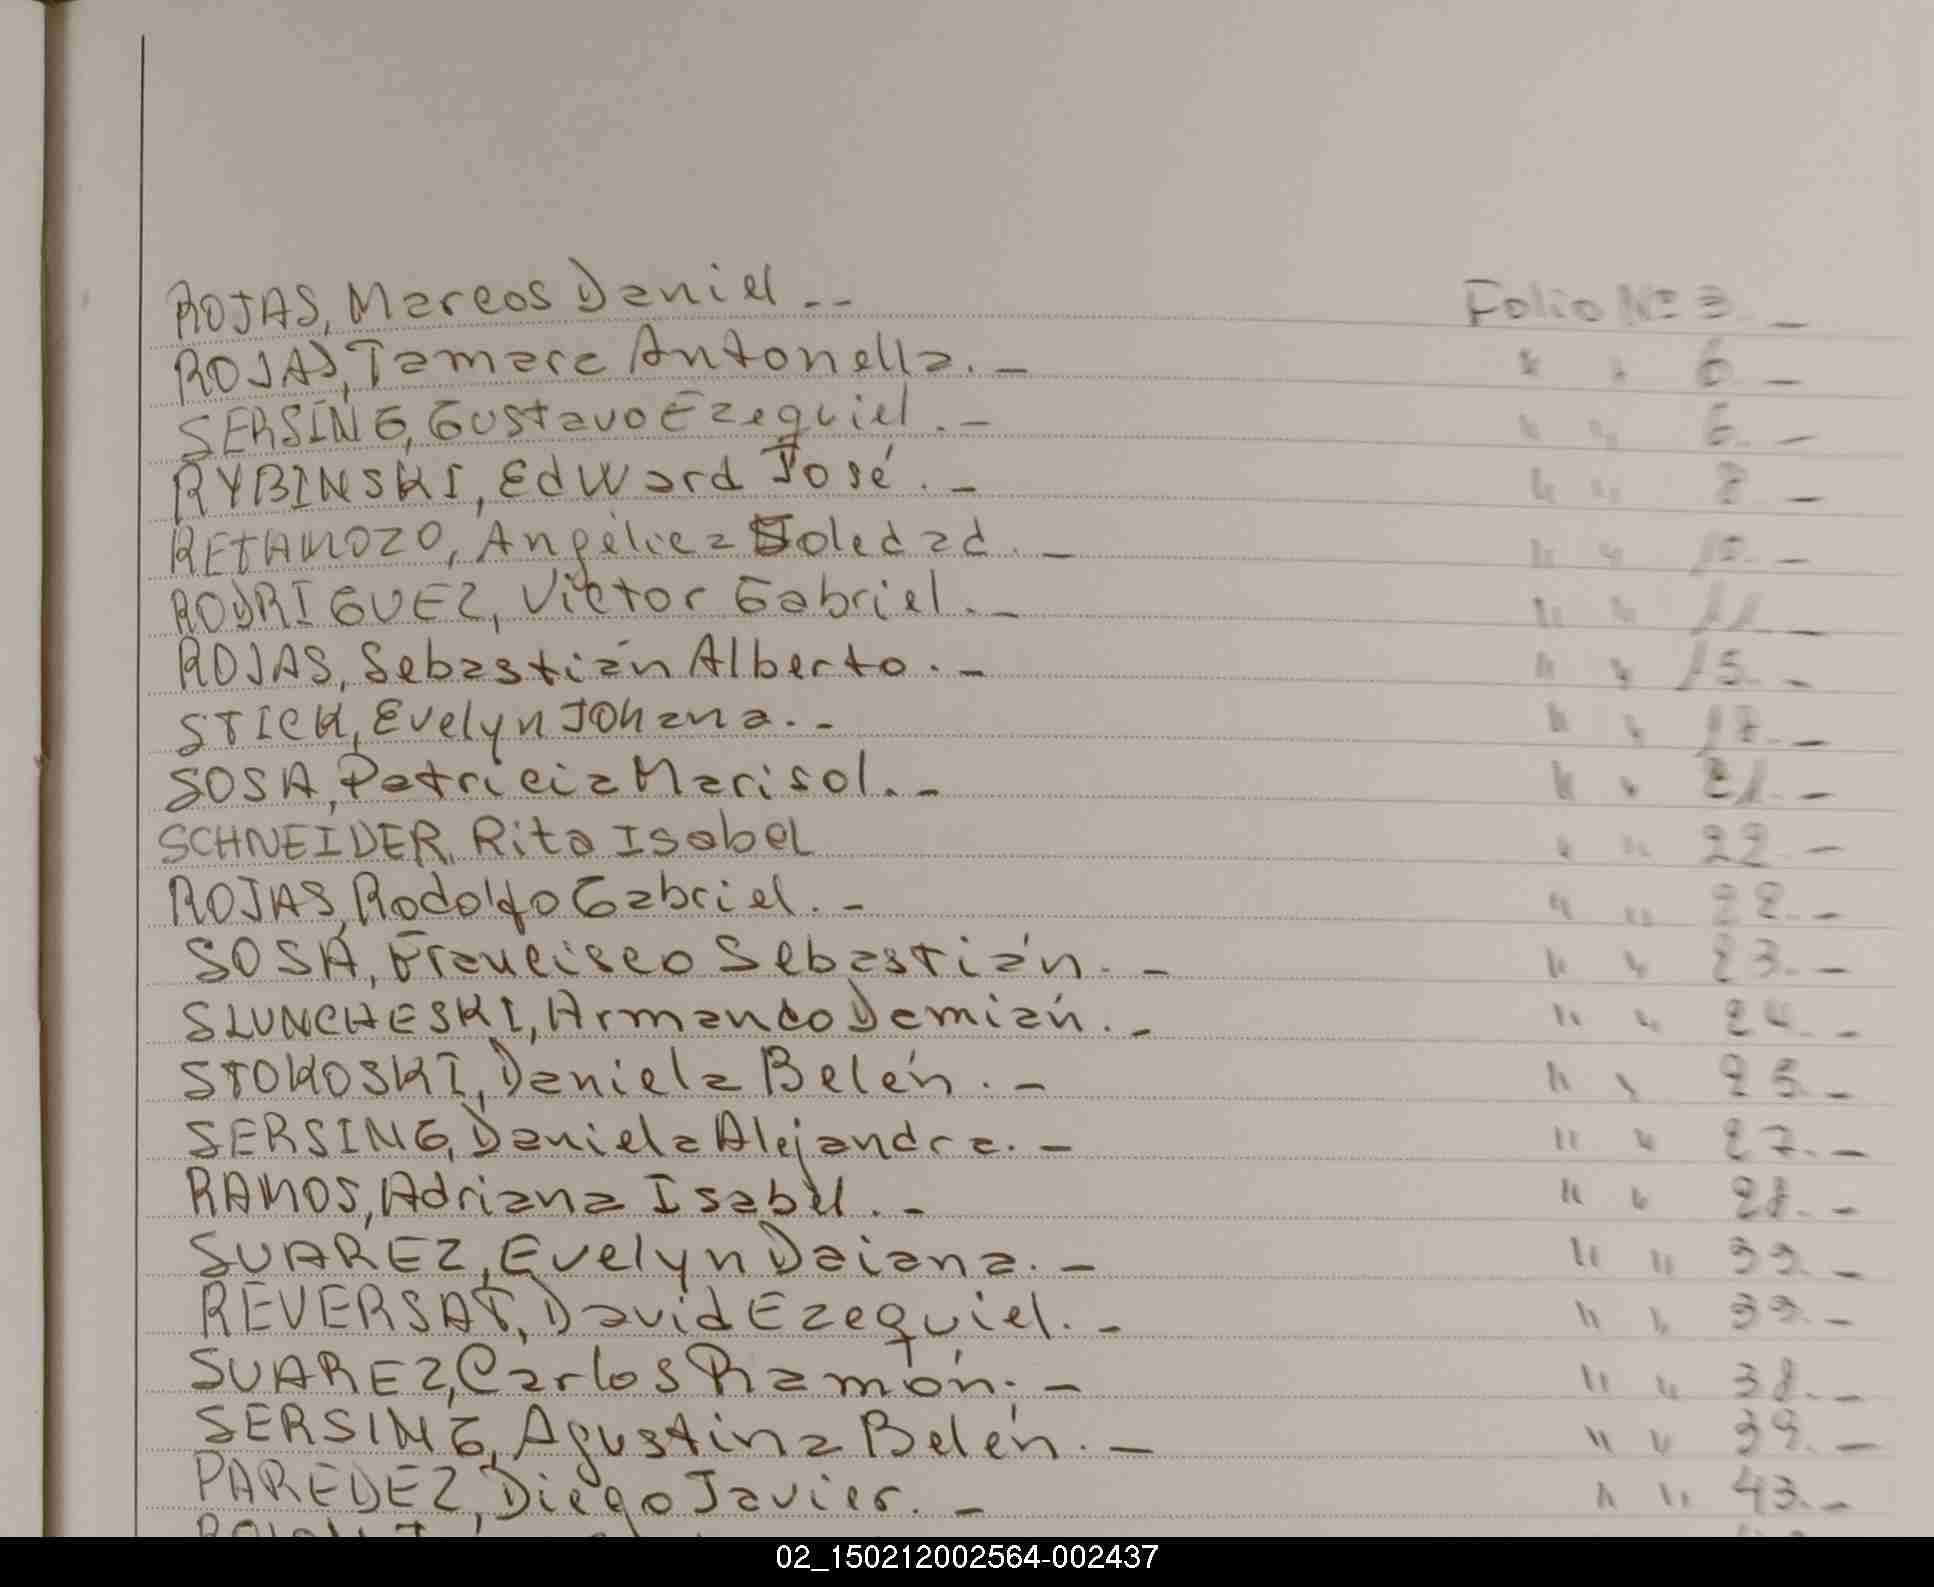 ROJAS, Marcos Daniel.- Folio Nº 3.-
ROJAS, Tamara Antonella.- " " 6.-
SERSING, Gustavo Ezequiel.- " " 6.-
RYBINSKI, Edward José.- " " 8.-
RETAMOZO, Angélica Soledad.- " " 10.-
RODRIGUEZ, Victor Gabriel.- " " 11.-
ROJAS, Sebastián Alberto.- " " 15.-
STICK, Evelyn Johana.- " " 17.-
SOSA, Patricia Marisol.- " " 21.-
SCHNEIDER, Rita Isabel " " 22.-
ROJAS, Rodolfo Gabriel.- " " 22.-
SOSA, Francisco Sebastián.- " " 23.-
SLUNCHESKI, Armando Demián.- " " 24.-
STOKOSKI, Daniela Belén.- " " 25.-
SERSING, Daniela Alejandra.- " " 27.-
RAMOS, Adriana Isabel.- " " 28.-
SUAREZ, Evelyn Daiana.- " " 33.-
REVERSAT, David Ezequiel.- " " 33.-
SUAREZ, Carlos Ramón.- " " 38.-
SERSING, Agustina Belén.- " " 39.-
PAREDEZ, Diego Javier.- " " 43.-
02_150212002564-002437